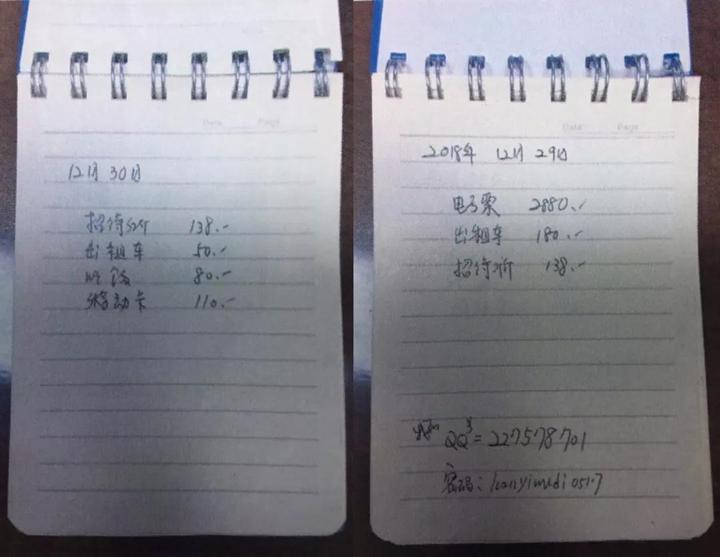 Date Page
12月 30日
招待所 138.-
出租车 50.-
吃饭 80.-
移动卡 110.-
Date Page
2018年 12月 29日
电子票 2880.-
出租车 180.-
招待所 138.-
QQ号=227578701
密码: